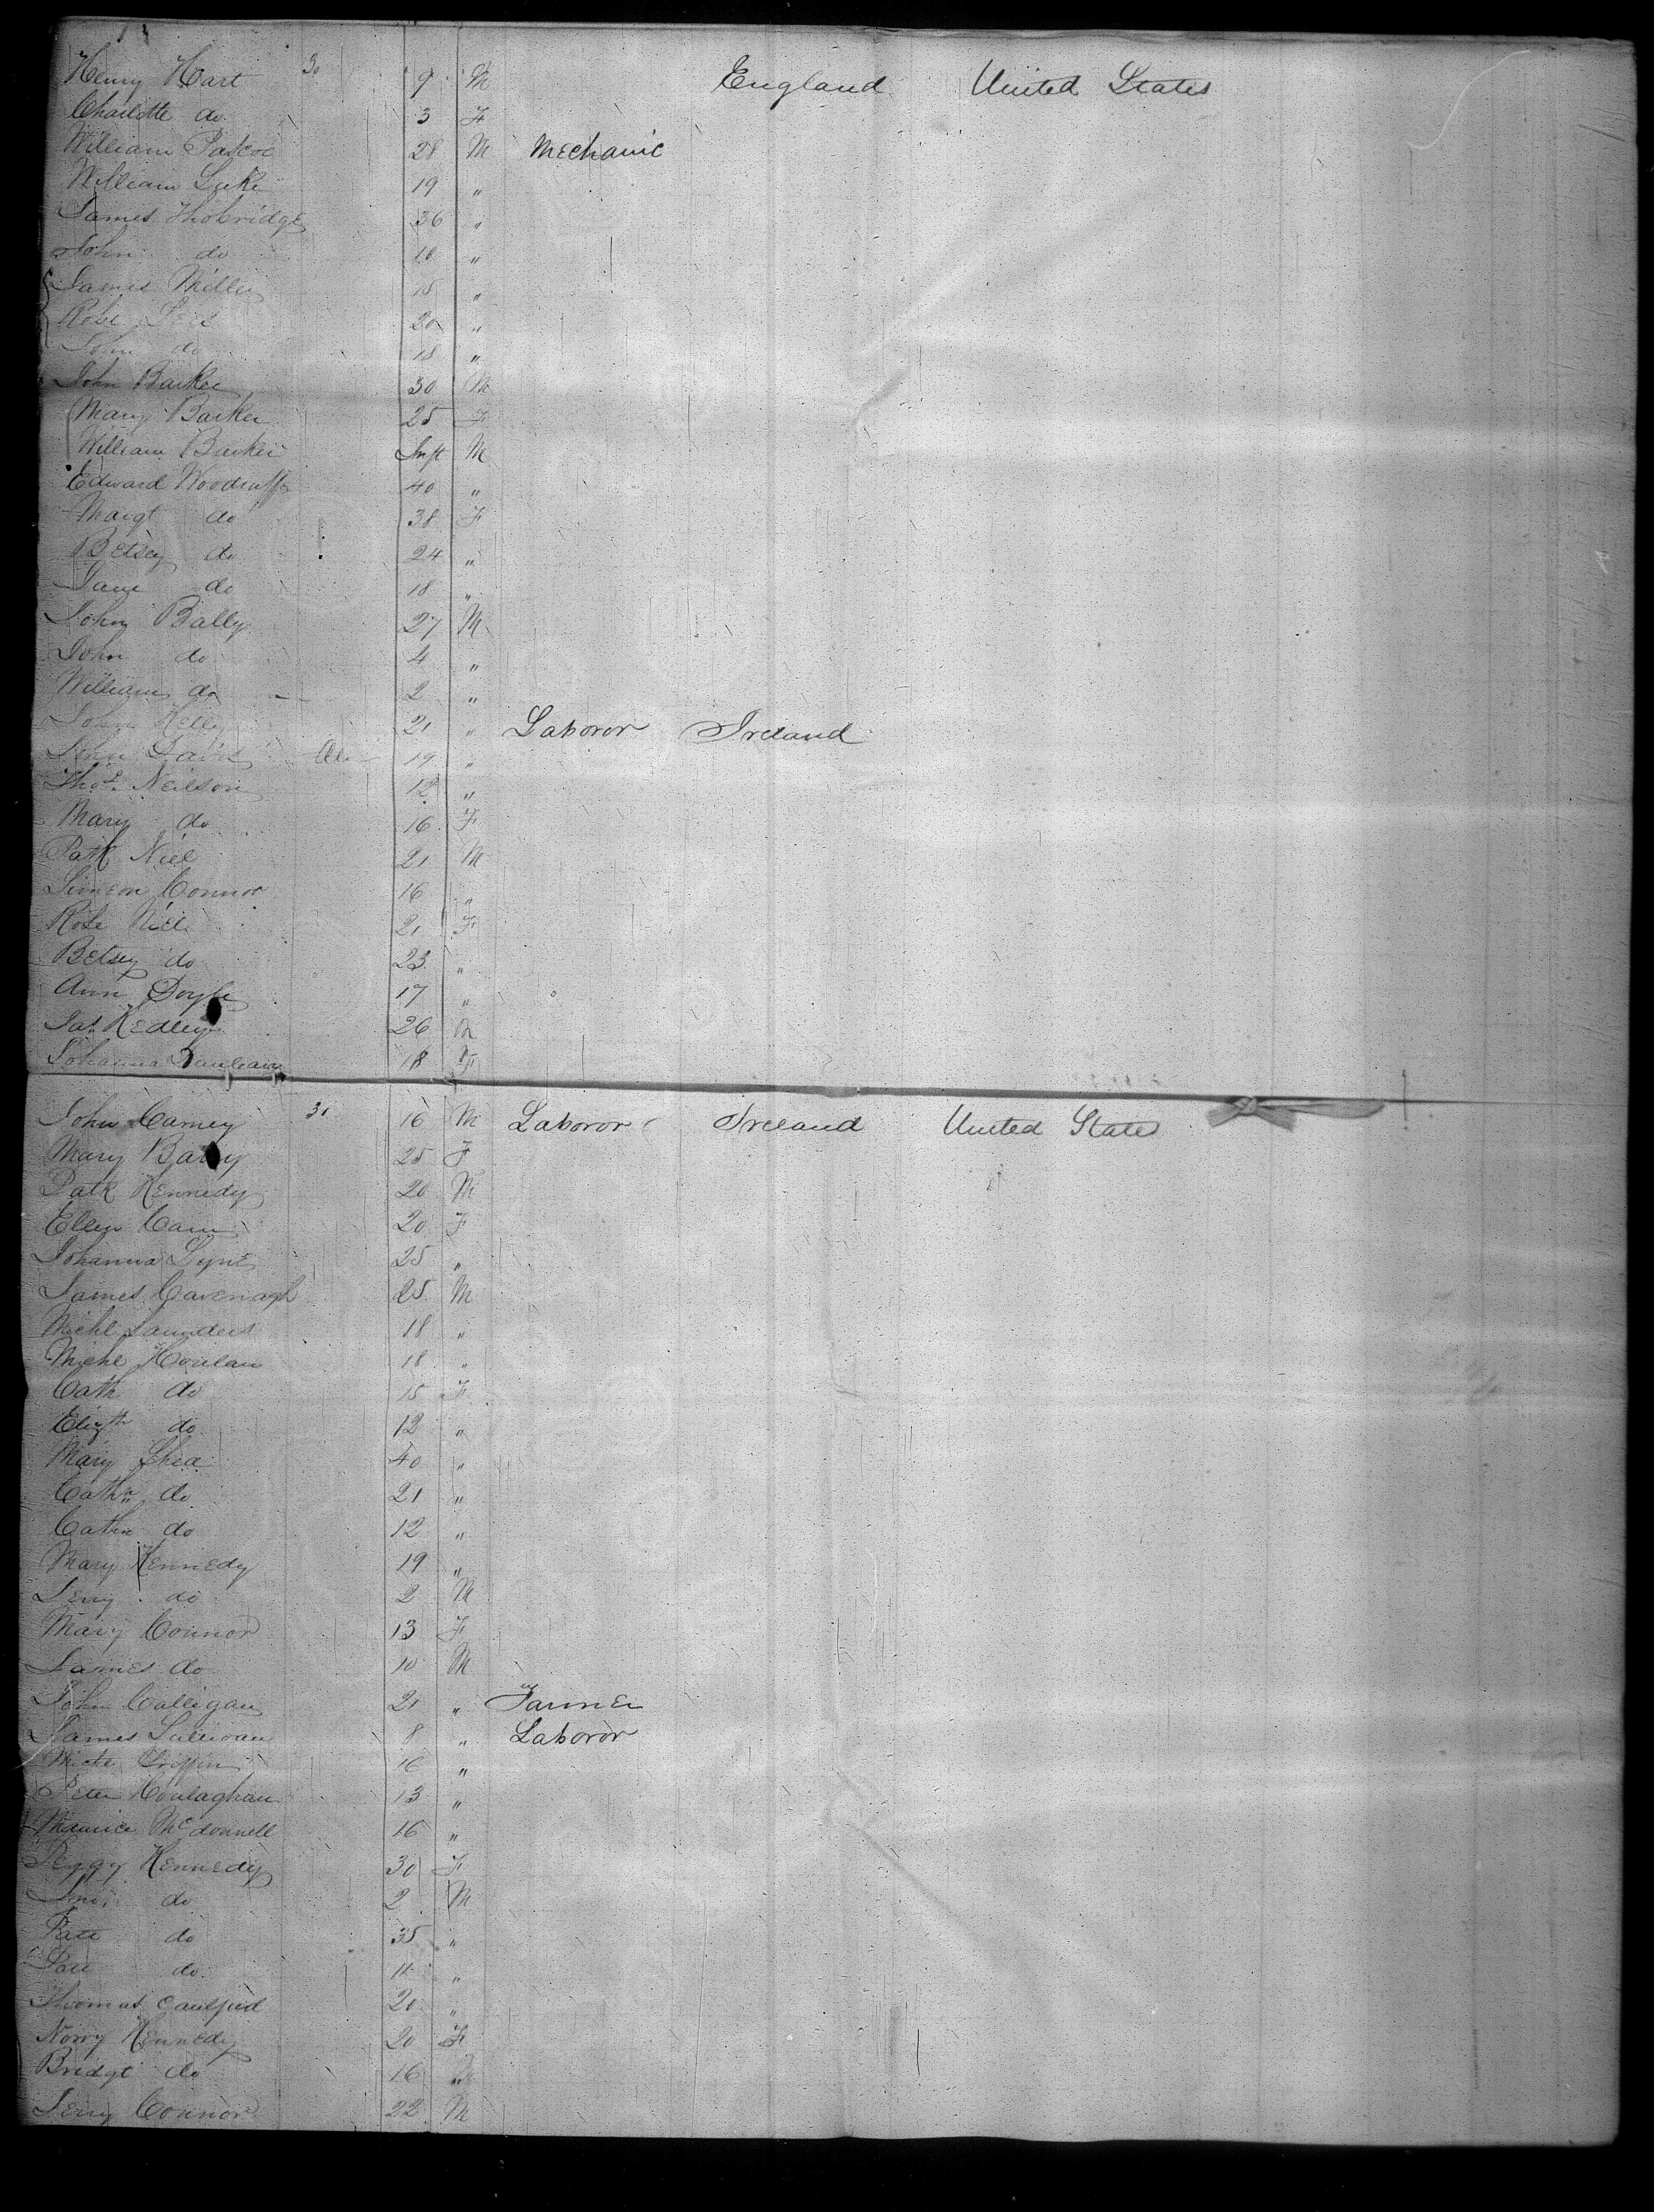 Henry Hart 30 9 M England United States
Charlotte do 3 F
William Pascoe 28 M Mechanic
William Luke 19 "
James Thobridge 36 "
John do 10 "
James Miller 15 "
Robt 20 "
John do 18 "
John Barker 30 M
Mary Barker 25 F
William Barker Inft M
Edward Woodruffe 40 "
Margt do 38 F
Betsey do 24 "
Jane do 18 "
John Bally 27 M
John do 4 "
William do 2 "
John Kelly 21 " Laboror Ireland
John Davis 19 "
Thos Neilson 12 "
Mary do 16 F
Patk Niel 21 M
Simeon Connor 16 "
Rose Niel 21 F
Betsey do 23 "
Ann Doyle 17 "
Jas Hedley 26 M
Johanna 18 F
John Carney 31 16 M Laboror Ireland United States
Mary Barry 25 F
Patk Kennedy 20 M
Ellen Cain 20 F
Johanna Lyne 25 "
James Cavenagh 25 M
Michl Saunders 18 "
Michl Houlan 18 "
Cath do 15 F
Elizth do 12 "
Mary Shea 40 "
Cathn do 21 "
Cathn do 12 "
Mary Kennedy 19 "
Jerry do 2 M
Mary Connor 13 F
James do 10 M
John Calligan 21 " Farmer
James Sullivan 8 " Laboror
Michl Griffin 16 "
Peter Houlaghan 13 "
Maurice McDonnell 16 "
Peggy Kennedy 30 F
Jno. do 2 M
do 35 "
do "
Thomas Caulfied 20 "
Norry Kennedy 20 F
Bridgt do 16 "
Jerry Connor 22 M